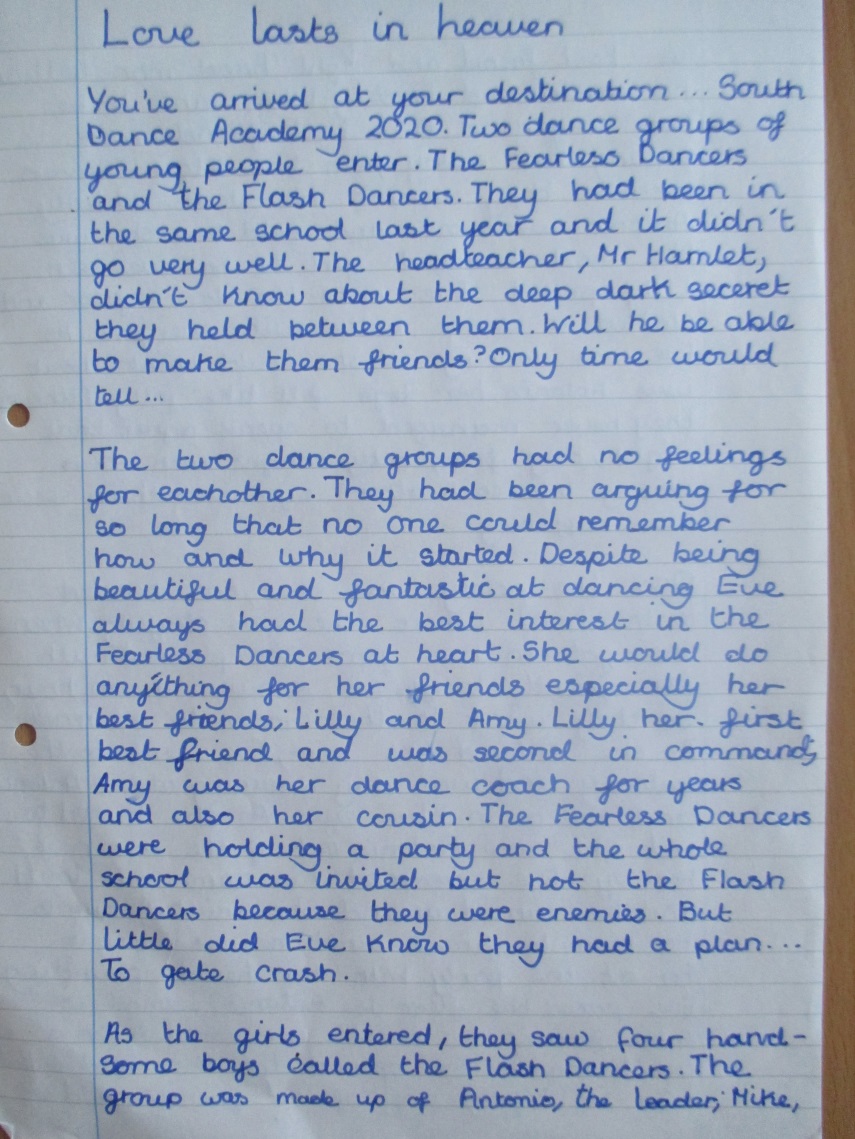 Love lasts in heaven
You've arrived at your destination... South
Dance Academy 2020. Two dance groups of
young people enter. The Fearless Dancers
and the Flash Dancers. They had been in
the same school last year and it didn't
go very well. The headteacher, Mr Hamlet,
didn't know about the deep dark seceret
they held between them. Will he be able
to make them friends? Only time would
tell...
The two dance groups had no feelings
for eachother. They had been arguing for
so long that no one could remember
how and why it started. Despite being
beautiful and fantastic at dancing Eve
always had the best interest in the
Fearless Dancers at heart. She would do
anything for her friends especially her
best friends; Lilly and Amy. Lilly her first
best friend and was second in command;
Amy was her dance coach for years
and also her cousin. The Fearless Dancers
were holding a party and the whole
school was invited but not the Flash
Dancers because they were enemies. But
little did Eve know they had a plan...
To gate crash.
As the girls entered, they saw four hand-
some boys called the Flash Dancers. The
group was made up of Antonio, the leader; Mike,